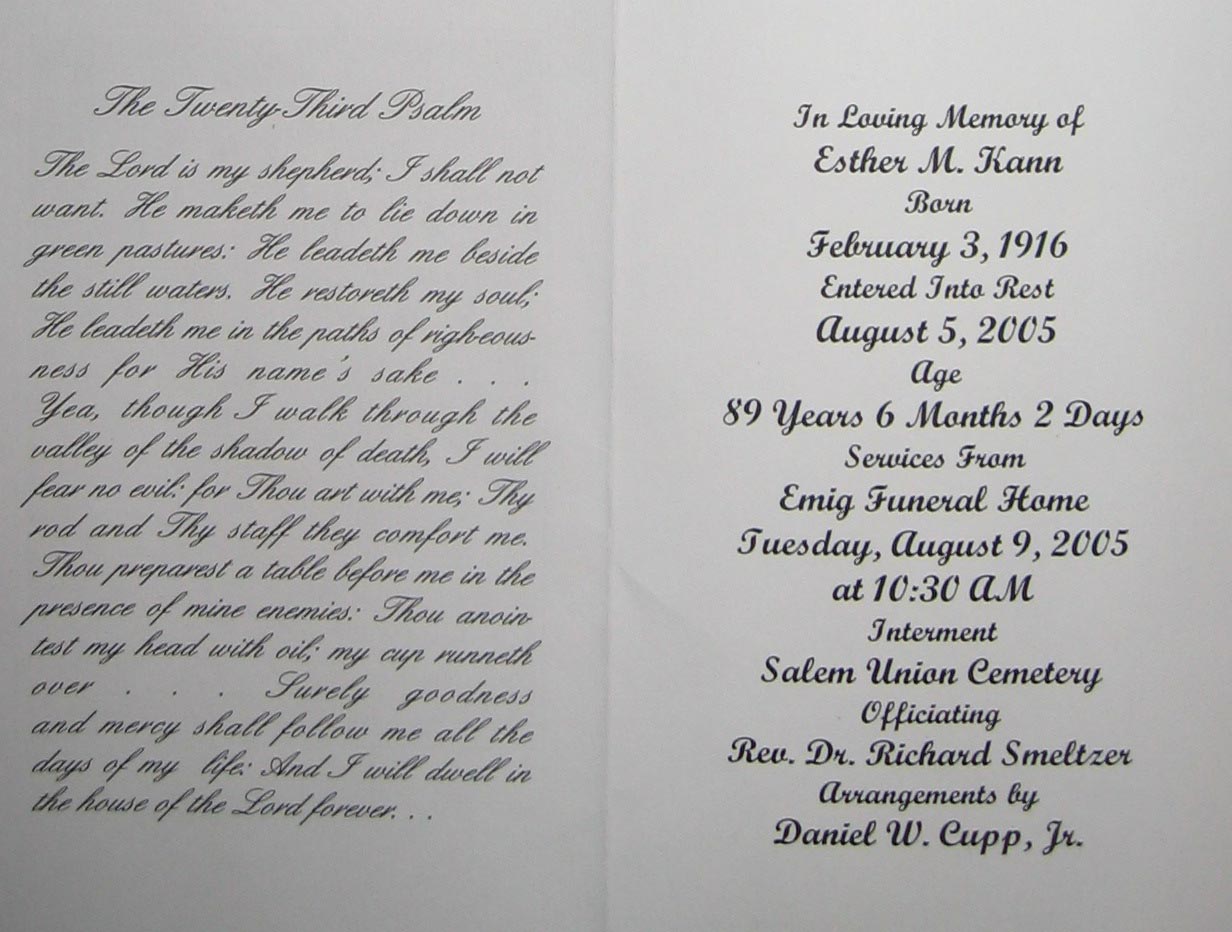 The Twenty-Third Psalm
The Lord is my shepherd; I shall not
want. He maketh me to lie down in
green pastures: He leadeth me beside
the still waters. He restoreth my soul;
He leadeth me in the paths of righteous-
ness for His name's sake . . .
Yea, though I walk through the
valley of the shadow of death, I will
fear no evil: for Thou art with me; Thy
rod and Thy staff they comfort me.
Thou preparest a table before me in the
presence of mine enemies: Thou anoin-
test my head with oil; my cup runneth
over . . . Surely goodness
and mercy shall follow me all the
days of my life: And I will dwell in
the house of the Lord forever. . .
In Loving Memory of
Esther M. Kann
Born
February 3, 1916
Entered Into Rest
August 5, 2005
Age
89 Years 6 Months 2 Days
Services From
Emig Funeral Home
Tuesday, August 9, 2005
at 10:30 AM
Interment
Salem Union Cemetery
Officiating
Rev. Dr. Richard Smeltzer
Arrangements by
Daniel W. Cupp, Jr.